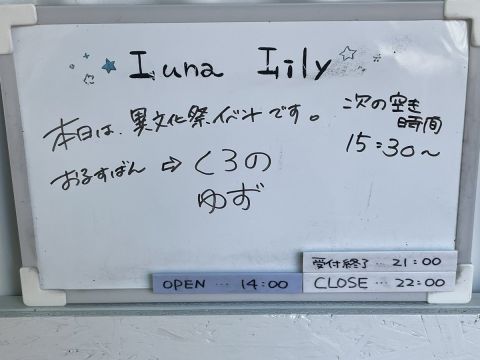 Luna Lily
本日は、異文化祭イベントです。
おるすばん ⇨ くろの
ゆず
次の空き
時間
15:30~
受付終了…21:00
OPEN … 14:00
CLOSE … 22:00